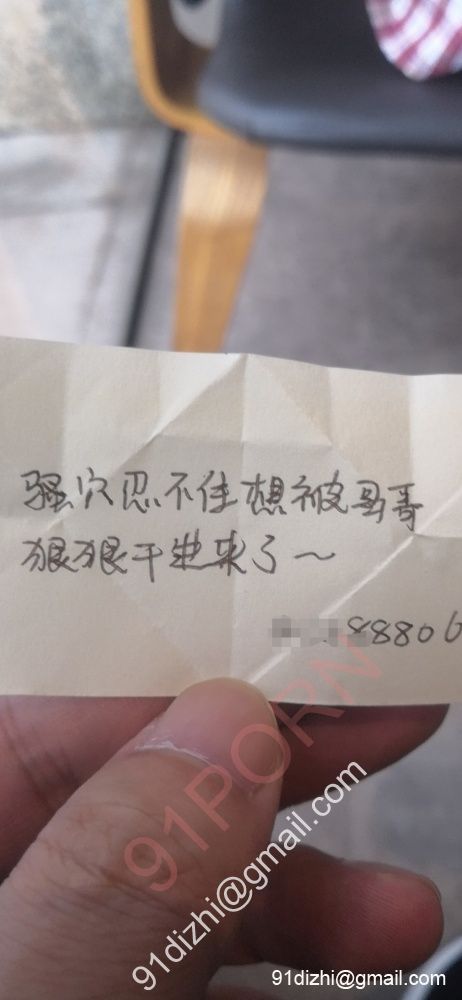 骚穴忍不住想被哥哥
狠狠干进来了～
88806
91PORN
91dizhi@gmail.com
91dizhi@gmail.com